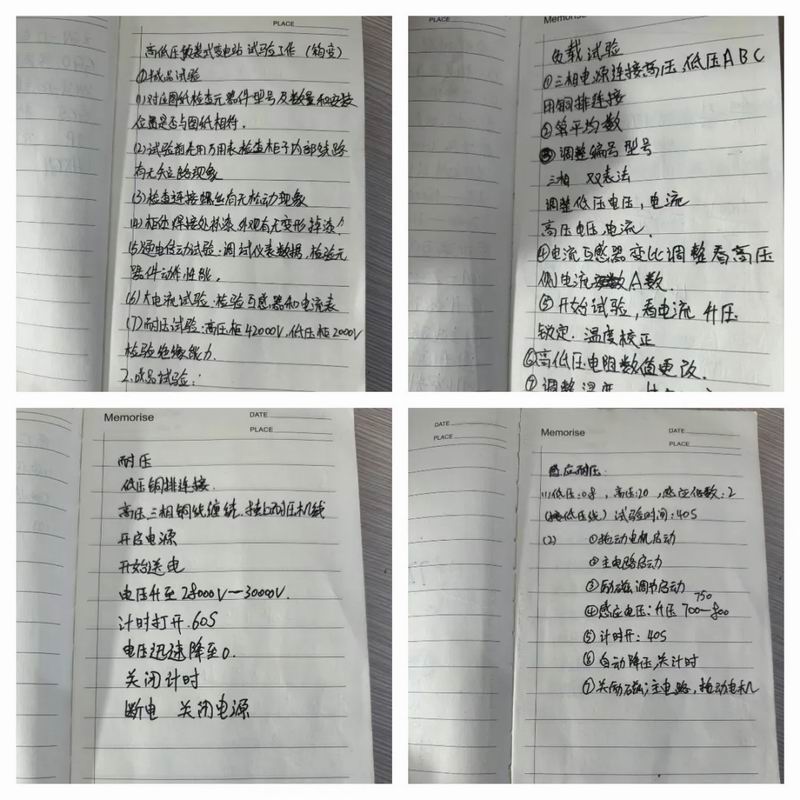 PLACE
高低压预装式变电站 试验工作（箱变）
①成品试验
(1)对应图纸检查元器件型号及数量和安装
位置是否与图纸相符.
(2)试验前先用万用表检查柜子内部线路
有无短路现象
(3)检查连接螺丝有无松动现象
(4)柜体焊接处补漆.外观有无变形掉漆
(5)通电传动试验.调试仪表数据,检验元
器件动作性能.
(6)大电流试验.检验互感器和电流表
(7)耐压试验:高压柜42000V,低压柜2000V
检验绝缘能力.
2.成品试验:
Memorise
负载试验
①三相电源连接高压.低压ABC
用铜排连接
②算平均数
③调整编号型号
三相 双表法
调整低压电压,电流
高压电压,电流.
④电流互感器变比调整看高压
侧电流 A数.
⑤开始试验,看电流 升压
锁定.温度校正
⑥高低压电阻数值更改.
⑦调整温度
Memorise
DATE
PLACE
耐压
低压铜排连接.
高压三相铜线缠绕.接上耐压机线
开启电源
开始送电
电压升至28000V—30000V.
计时打开.60S
电压迅速降至0.
关闭计时
断电 关闭电源
DATE
PLACE
Memorise
DATE
PLACE
感应耐压.
(1)低压:0.8,高压:20,感应倍数:2
(低压线)试验时间:40S
(2) ①拖动电机启动
②主电路启动
③励磁调节启动
750
④感应电压:升压700—800
⑤计时开:40S
⑥自动降压,关计时
⑦关励磁;主电路,拖动电机